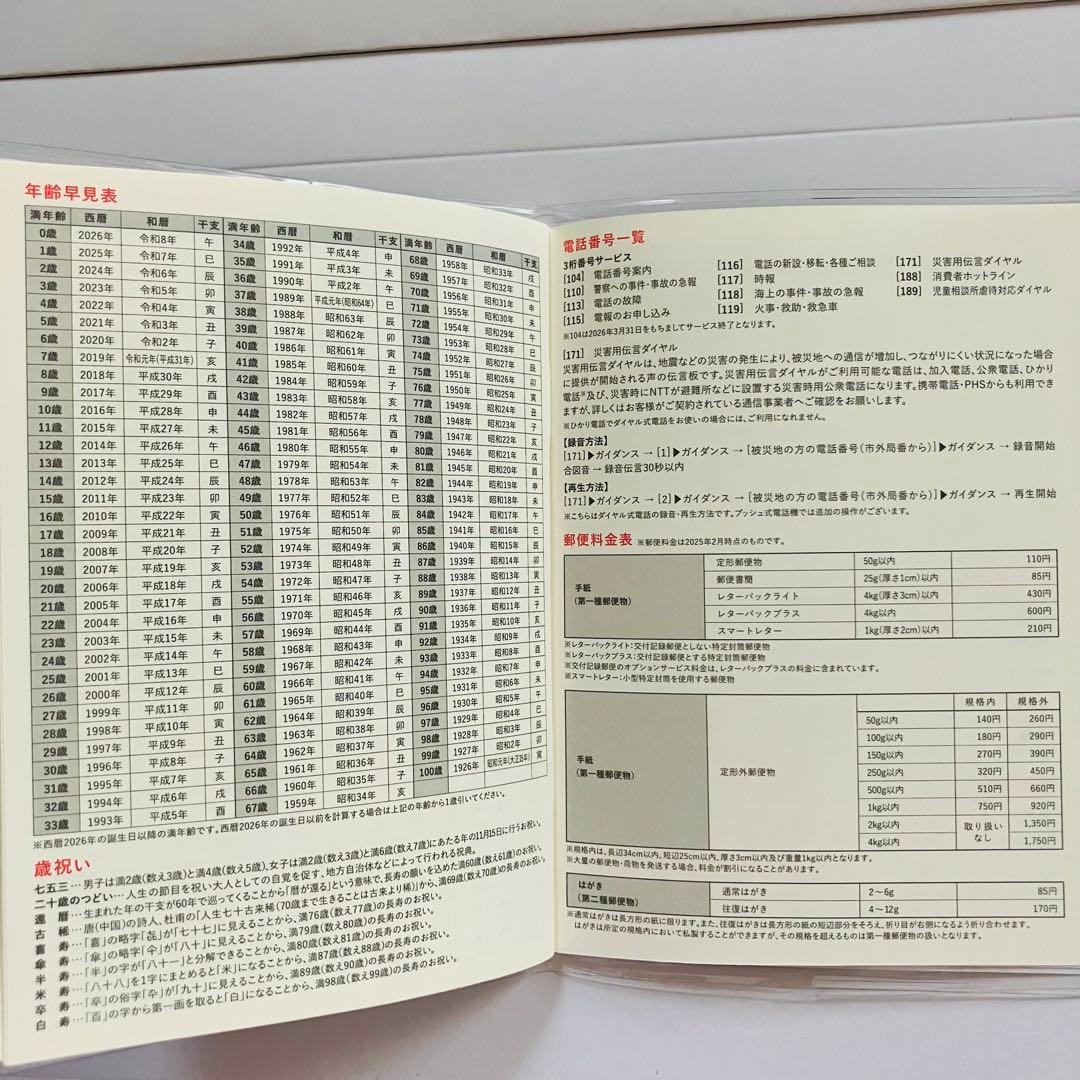 年齢早見表
満年齢 西暦 和暦 干支 満年齢 西暦 和暦 干支 満年齢 西暦 和暦 干支
0歳 2026年 令和8年 午 34歳 1992年 平成4年 申 68歳 1958年 昭和33年 戌
1歳 2025年 令和7年 巳 35歳 1991年 平成3年 未 69歳 1957年 昭和32年 酉
2歳 2024年 令和6年 辰 36歳 1990年 平成2年 午 70歳 1956年 昭和31年 申
3歳 2023年 令和5年 卯 37歳 1989年 平成元年(昭和64年) 巳 71歳 1955年 昭和30年 未
4歳 2022年 令和4年 寅 38歳 1988年 昭和63年 辰 72歳 1954年 昭和29年 午
5歳 2021年 令和3年 丑 39歳 1987年 昭和62年 卯 73歳 1953年 昭和28年 巳
6歳 2020年 令和2年 子 40歳 1986年 昭和61年 寅 74歳 1952年 昭和27年 辰
7歳 2019年 令和元年(平成31年) 亥 41歳 1985年 昭和60年 丑 75歳 1951年 昭和26年 卯
8歳 2018年 平成30年 戌 42歳 1984年 昭和59年 子 76歳 1950年 昭和25年 寅
9歳 2017年 平成29年 酉 43歳 1983年 昭和58年 亥 77歳 1949年 昭和24年 丑
10歳 2016年 平成28年 申 44歳 1982年 昭和57年 戌 78歳 1948年 昭和23年 子
11歳 2015年 平成27年 未 45歳 1981年 昭和56年 酉 79歳 1947年 昭和22年 亥
12歳 2014年 平成26年 午 46歳 1980年 昭和55年 申 80歳 1946年 昭和21年 戌
13歳 2013年 平成25年 巳 47歳 1979年 昭和54年 未 81歳 1945年 昭和20年 酉
14歳 2012年 平成24年 辰 48歳 1978年 昭和53年 午 82歳 1944年 昭和19年 申
15歳 2011年 平成23年 卯 49歳 1977年 昭和52年 巳 83歳 1943年 昭和18年 未
16歳 2010年 平成22年 寅 50歳 1976年 昭和51年 辰 84歳 1942年 昭和17年 午
17歳 2009年 平成21年 丑 51歳 1975年 昭和50年 卯 85歳 1941年 昭和16年 巳
18歳 2008年 平成20年 子 52歳 1974年 昭和49年 寅 86歳 1940年 昭和15年 辰
19歳 2007年 平成19年 亥 53歳 1973年 昭和48年 丑 87歳 1939年 昭和14年 卯
20歳 2006年 平成18年 戌 54歳 1972年 昭和47年 子 88歳 1938年 昭和13年 寅
21歳 2005年 平成17年 酉 55歳 1971年 昭和46年 亥 89歳 1937年 昭和12年 丑
22歳 2004年 平成16年 申 56歳 1970年 昭和45年 戌 90歳 1936年 昭和11年 子
23歳 2003年 平成15年 未 57歳 1969年 昭和44年 酉 91歳 1935年 昭和10年 亥
24歳 2002年 平成14年 午 58歳 1968年 昭和43年 申 92歳 1934年 昭和9年 戌
25歳 2001年 平成13年 巳 59歳 1967年 昭和42年 未 93歳 1933年 昭和8年 酉
26歳 2000年 平成12年 辰 60歳 1966年 昭和41年 午 94歳 1932年 昭和7年 申
27歳 1999年 平成11年 卯 61歳 1965年 昭和40年 巳 95歳 1931年 昭和6年 未
28歳 1998年 平成10年 寅 62歳 1964年 昭和39年 辰 96歳 1930年 昭和5年 午
29歳 1997年 平成9年 丑 63歳 1963年 昭和38年 卯 97歳 1929年 昭和4年 巳
30歳 1996年 平成8年 子 64歳 1962年 昭和37年 寅 98歳 1928年 昭和3年 辰
31歳 1995年 平成7年 亥 65歳 1961年 昭和36年 丑 99歳 1927年 昭和2年 卯
32歳 1994年 平成6年 戌 66歳 1960年 昭和35年 子 100歳 1926年 昭和元年(大正15年) 寅
33歳 1993年 平成5年 酉 67歳 1959年 昭和34年 亥
※西暦2026年の誕生日以降の満年齢です。西暦2026年の誕生日以前を計算する場合は上記の年齢から1歳引いてください。
歳祝い
七五三…男子は満2歳(数え3歳)と満4歳(数え5歳)、女子は満2歳(数え3歳)と満6歳(数え7歳)にあたる年の11月15日に行うお祝い。
二十歳のつどい…人生の節目を祝い大人としての自覚を促す、地方自治体などによって行われる祝典。
還暦…生まれた年の干支が60年で巡ってくることから「暦が還る」という意味で、長寿の願いを込めた満60歳(数え61歳)のお祝い。
古稀…唐(中国)の詩人、杜甫の「人生七十古来稀(70歳まで生きることは古来より稀)」から、満69歳(数え70歳)の長寿のお祝い。
喜寿…「喜」の略字「㐂」が「七十七」に見えることから、満76歳(数え77歳)の長寿のお祝い。
傘寿…「傘」の略字「仐」が「八十」に見えることから、満79歳(数え80歳)の長寿のお祝い。
半寿…「半」の字が「八十一」と分解できることから、満80歳(数え81歳)の長寿のお祝い。
米寿…「八十八」を1字にまとめると「米」になることから、満87歳(数え88歳)の長寿のお祝い。
卒寿…「卒」の俗字「卆」が「九十」に見えることから、満89歳(数え90歳)の長寿のお祝い。
白寿…「百」の字から第一画を取ると「白」になることから、満98歳(数え99歳)の長寿のお祝い。
電話番号一覧
3桁番号サービス
[104] 電話番号案内
[110] 警察への事件・事故の急報
[113] 電話の故障
[115] 電報のお申し込み
[116] 電話の新設・移転・各種ご相談
[117] 時報
[118] 海上の事件・事故の急報
[119] 火事・救助・救急車
[171] 災害用伝言ダイヤル
[188] 消費者ホットライン
[189] 児童相談所虐待対応ダイヤル
※104は2026年3月31日をもちましてサービス終了となります。
[171] 災害用伝言ダイヤル
災害用伝言ダイヤルは、地震などの災害の発生により、被災地への通信が増加し、つながりにくい状況になった場合
に提供が開始される声の伝言板です。災害用伝言ダイヤルがご利用可能な電話は、加入電話、公衆電話、ひかり
電話※及び、災害時にNTTが避難所などに設置する災害時用公衆電話になります。携帯電話・PHSからも利用でき
ますが、詳しくはお客様がご契約されている通信事業者へご確認をお願いします。
※ひかり電話でダイヤル式電話をお使いの場合には、ご利用になれません。
【録音方法】
[171]▶ガイダンス → [1]▶ガイダンス → [被災地の方の電話番号(市外局番から)]▶ガイダンス → 録音開始
合図音 → 録音伝言30秒以内
【再生方法】
[171]▶ガイダンス → [2]▶ガイダンス → [被災地の方の電話番号(市外局番から)]▶ガイダンス → 再生開始
※こちらはダイヤル式電話の録音・再生方法です。プッシュ式電話機では追加の操作がございます。
郵便料金表 ※郵便料金は2025年2月時点のものです。
手紙
(第一種郵便物)
定形郵便物 50g以内 110円
郵便書簡 25g(厚さ1cm)以内 85円
レターパックライト 4kg(厚さ3cm)以内 430円
レターパックプラス 4kg以内 600円
スマートレター 1kg(厚さ2cm)以内 210円
※レターパックライト:交付記録郵便としない特定封筒郵便物
※レターパックプラス:交付記録郵便とする特定封筒郵便物
※交付記録郵便のオプションサービス料金は、レターパックプラスの料金に含まれています。
※スマートレター:小型特定封筒を使用する郵便物
手紙
(第一種郵便物)
定形外郵便物
規格内 規格外
50g以内 140円 260円
100g以内 180円 290円
150g以内 270円 390円
250g以内 320円 450円
500g以内 510円 660円
1kg以内 750円 920円
2kg以内 取り扱いなし 1,350円
4kg以内 1,750円
※規格内は、長辺34cm以内、短辺25cm以内、厚さ3cm以内及び重量1kg以内となります。
※大量の郵便物・荷物を発送する場合、料金が割引になることがあります。
はがき
(第二種郵便物)
通常はがき 2~6g 85円
往復はがき 4~12g 170円
※通常はがきは長方形の紙に限ります。また、往復はがきは長方形の紙の短辺部分をそろえ、折り目が右側になるよう折り合わせます。
はがきは所定の規格内において私製することができますが、その規格を超えるものは第一種郵便物の扱いとなります。